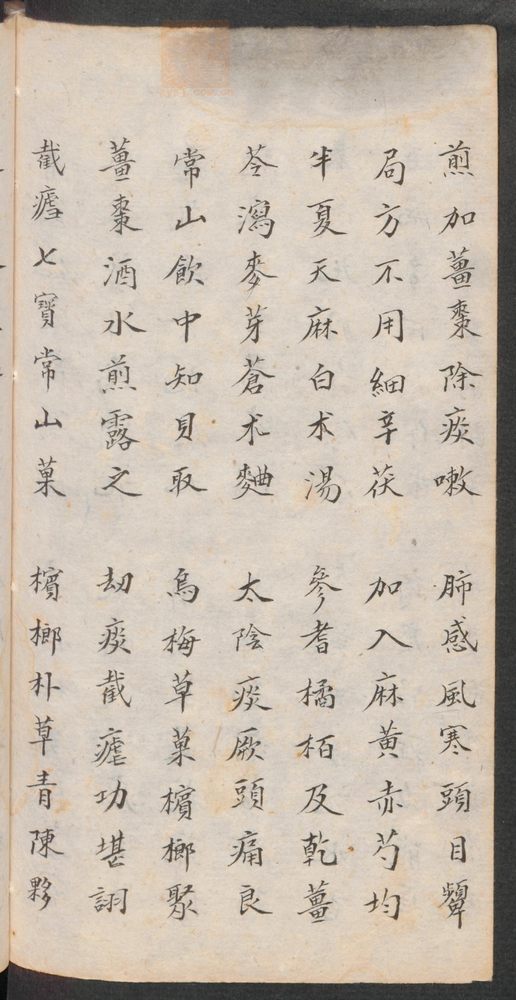 煎加薑棗除痰嗽　肺感風寒頭目顰
局方不用細辛茯　加入麻黃赤芍均
半夏天麻白朮湯　參耆橘栢及乾薑
苓瀉麥芽蒼朮麯　太陰痰厥頭痛良
常山飲中知貝取　烏梅草菓檳榔聚
薑棗酒水煎露之　刼痰截瘧功堪詡
截瘧七寶常山菓　檳榔朴草青陳夥